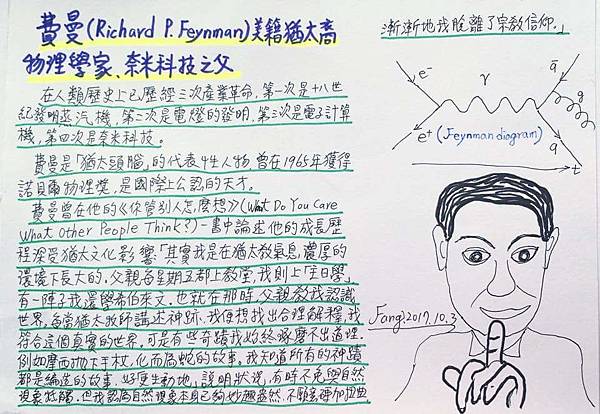 費曼(Richard P. Feynman)美籍猶太裔
物理學家、奈米科技之父
在人類歷史上已歷經三次產業革命,第一次是十八世
紀發明蒸汽機,第二次是電燈的發明,第三次是電子計算
機,第四次是奈米科技。
費曼是「猶太頭腦」的代表性人物,曾在1965年獲得
諾貝爾物理獎,是國際上公認的天才。
費曼曾在他的《你管別人怎麼想》(What Do You Care
What Other People Think?)一書中論述他的成長歷
程深受猶太文化影響:「其實我是在猶太教氣息濃厚的
環境下長大的,父親每星期五都上教堂,我則上「主日學」,
有一陣子我還學希伯來文,也就在那時,父親教我認識
世界,每當猶太牧師講述神跡,我便想找出合理解釋,找
符合這個真實的世界,可是有些奇蹟我始終琢磨不出道理,
例如摩西拋下手杖,化而為蛇的故事,我知道所有的神蹟
都是編造的故事,好更生動地說明狀況,有時不免與自然
現象抵觸,但我認為自然現象本身已夠妙趣盎然,不願意裡加扭曲
漸漸地我脫離了宗教信仰。」
e⁻
γ
q̄
g
e⁺
(Feynman diagram)
q
t
Fang 2017.10.3